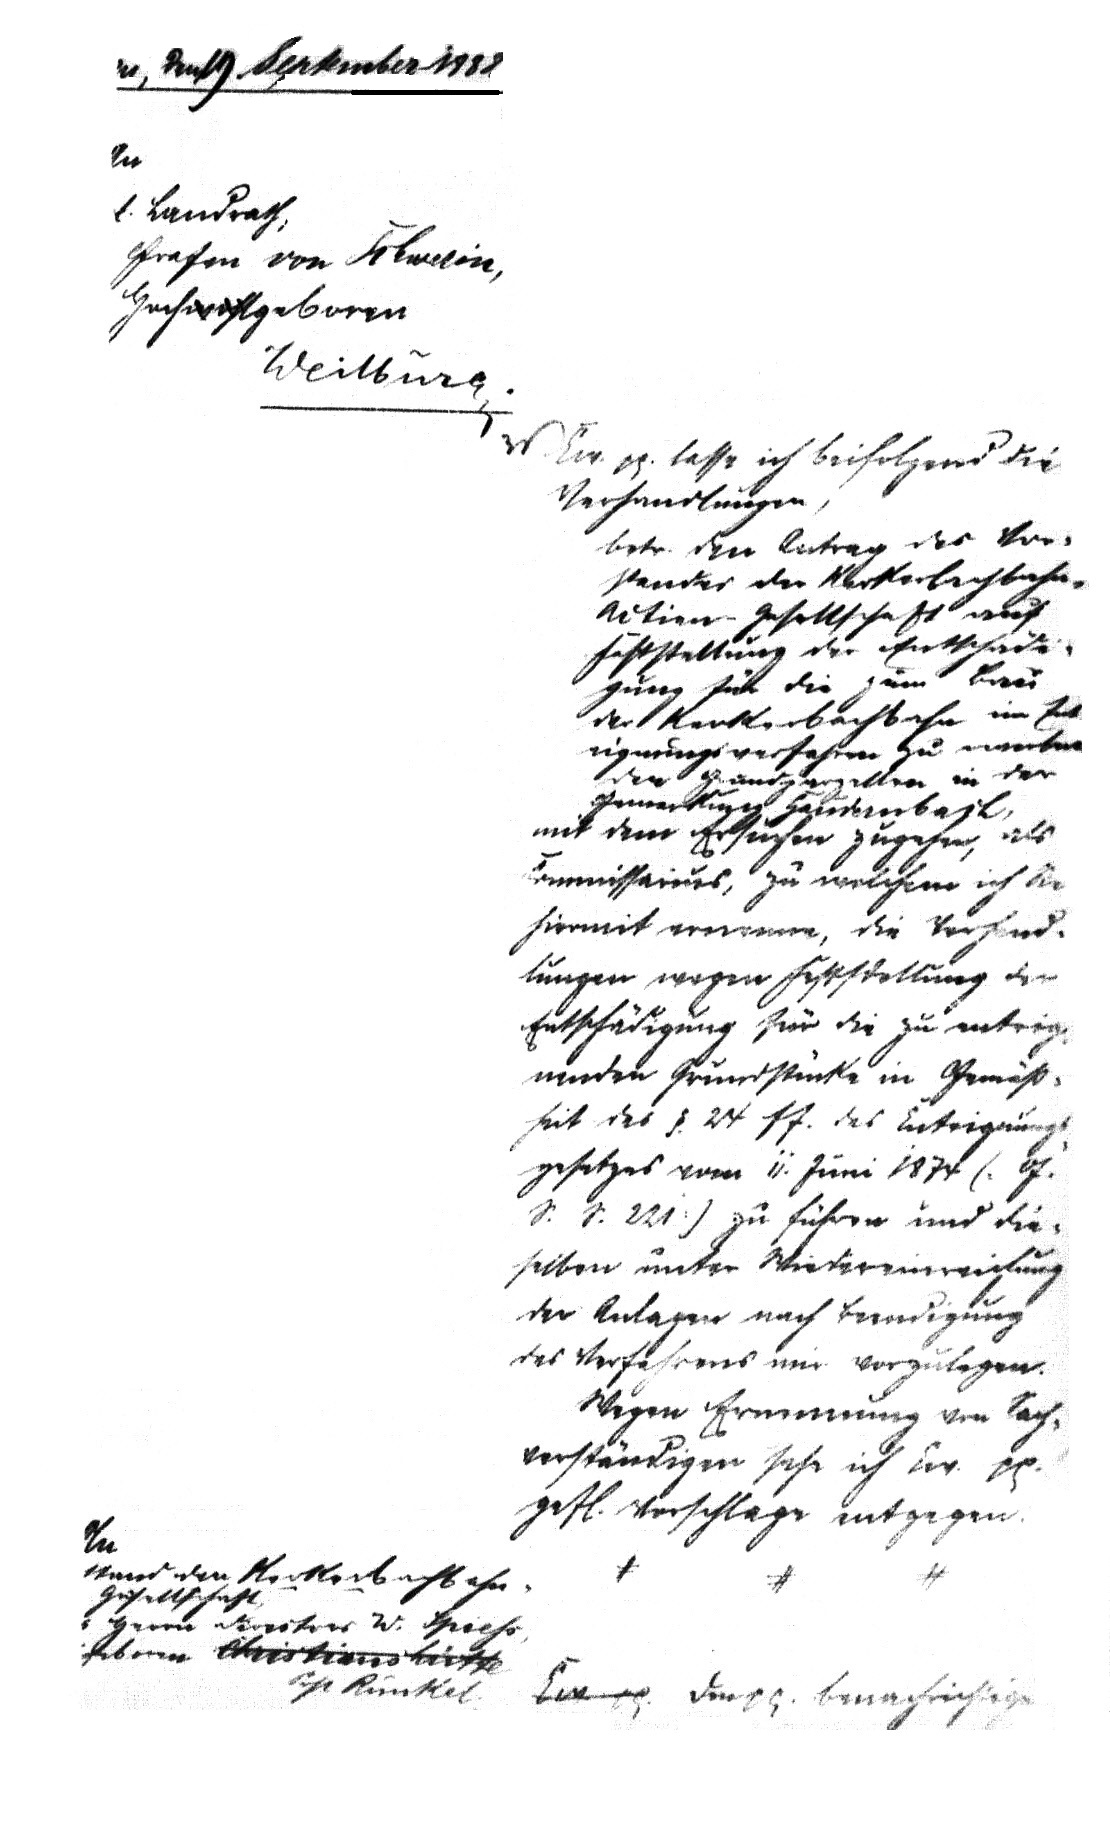 den 19 September 1882
An
k. Landrath,
Grafen von Schwerin,
Hochgeboren
Weilburg.
Ew. pp. lasse ich beifolgend die
Verhandlungen,
betr. den Antrag des Vor-
standes der Kerkerbachbahn-
Actien-Gesellschaft auf
Feststellung der Entschädi-
gung für die zum Bau
der Kerkerbachbahn im Ent
eignungsverfahren zu erwerben
den Grundparzellen in der
Gemarkung Heckholzhausen,
mit dem Ersuchen zugehen, als
Commissarius, zu welchem ich Sie
hiermit ernenne, die Verhand-
lungen wegen Feststellung der
Entschädigung für die zu enteig-
nenden Grundstücke in Gemäß-
heit des §. 24 ff. des Enteignungs-
gesetzes vom 11. Juni 1874 (: G.
S. S. 221 :) zu führen und die-
selben unter Wiedereinreichung
der Anlagen nach Beendigung
des Verfahrens mir vorzulegen.
Wegen Ernennung von Sach-
verständigen sehe ich Ew. pp.
gefl. Vorschlage entgegen.
An
stand der Kerkerbachbahn-
Gesellschaft,
Herrn Director W.
geboren Christianshütte
Runkel.
Ew. pp. den pp. benachrichtige